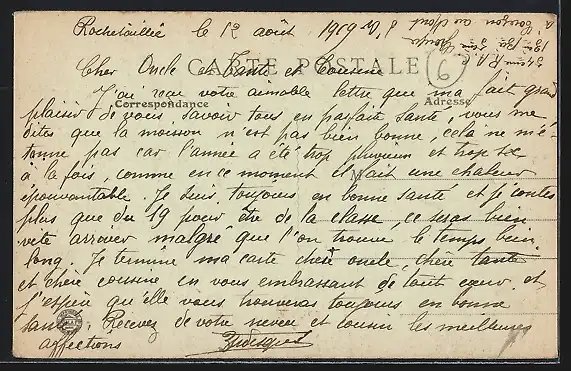 Rochetaillée le 12 août 1909
CARTE POSTALE
6
Cher Oncle et Tante et Cousine
J'ai reçu votre aimable lettre que ma fait grand
Correspondance
Adresse
plaisir de vous savoir tous en parfaite santé, vous me
dites que la moisson n'est pas bien bonne, cela ne m'é-
tonne pas car l'année a été trop pluvieux et trop
à la fois, comme en ce moment il fait une chaleur
épouvantable. Je suis toujours en bonne santé et je contes
plus que du 19 pour être de la classe, ce seras bien
vite arriver malgré que l'on trouve le temps bien
long. Je termine ma carte chère oncle chère tante
et chère cousine en vous embrassant de tout cœur et
j'espère qu'elle vous trouveras toujours en bonne
santé. Recevez de votre neveu et cousin les meilleures
affections